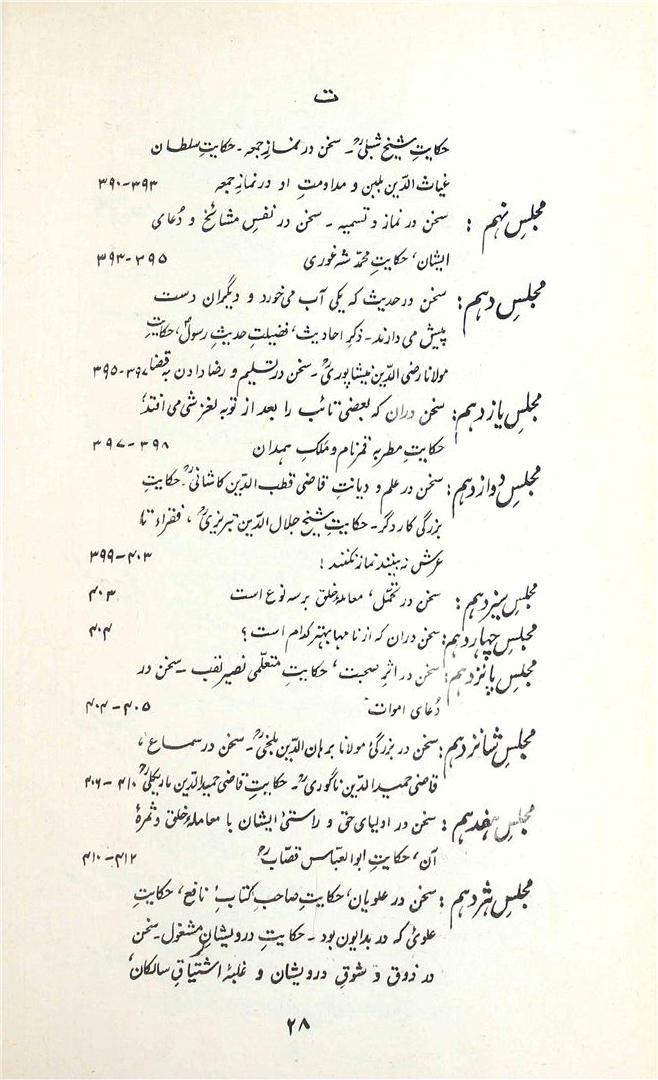 ت
حکایتِ شیخ شبلیؒ۔ سخن در نمازِ جمعہ۔ حکایتِ سلطان
غیاث الدّین بلبن و مداومتِ او در نمازِ جمعہ ۳۹۰-۳۹۳
مجلسِ نہم : سخن در نماز و تسمیہ۔ سخن در نفسِ مشائخ و دُعای
ایشان، حکایتِ محمّد شہ غوری ۳۹۳-۳۹۵
مجلسِ دہم : سخن در حدیث کہ یکی آب می خورد و دیگران دست
پیش می دارند۔ ذکرِ احادیث، فضیلتِ حدیثِ رسولؐ، حکایتِ
مولانا رضی الدّین نیشاپوریؒ۔ سخن در تسلیم و رضا دادن بہ قضا ۳۹۵-۳۹۷
مجلسِ یازدہم : سخن دران کہ بعضی تائب را بعد از توبہ لغزشی می افتد،
حکایتِ مطربہ قمر نام و مَلِکِ ہمدان ۳۹۷-۳۹۸
مجلسِ دوازدہم : سخن در علم و دیانتِ قاضی قطب الدّین کاشانیؒ۔ حکایتِ
بزرگی کاردگر۔ حکایتِ شیخ جلال الدّین تبریزیؒ، فقراء تا
عرش نہ بینند نماز نکنند! ۳۹۹-۴۰۳
مجلسِ سیزدہم : سخن در تحمّل، معاملۂ خلق بر سہ نوع است ۴۰۳
مجلسِ چہاردہم : سخن دران کہ از نامہا بہتر کدام است؟ ۴۰۴
مجلسِ پانزدہم : سخن در اثرِ صحبت، حکایتِ متعلّمی نصیر لقب۔ سخن در
دُعای اموات ۴۰۴-۴۰۵
مجلسِ شانزدہم : سخن در بزرگیٔ مولانا برہان الدّین بلخیؒ۔ سخن در سماع،
قاضی حمید الدّین ناگوریؒ۔ حکایتِ قاضی حمید الدّین ماریکلیؒ ۴۰۶-۴۱۰
مجلسِ ہفدہم : سخن در اولیای حق و راستیٔ ایشان با معاملۂ خلق و ثمرۂ
آن، حکایتِ ابو العبّاس قصّابؒ ۴۱۰-۴۱۲
مجلسِ ہژدہم : سخن در علویان، حکایتِ صاحبِ کتابِ نافع، حکایتِ
علوئی کہ در بدایون بود۔ حکایتِ درویشانِ مشغول۔ سخن
در ذوق و شوقِ درویشان و غلبۂ اشتیاقِ سالکان،
۲۸